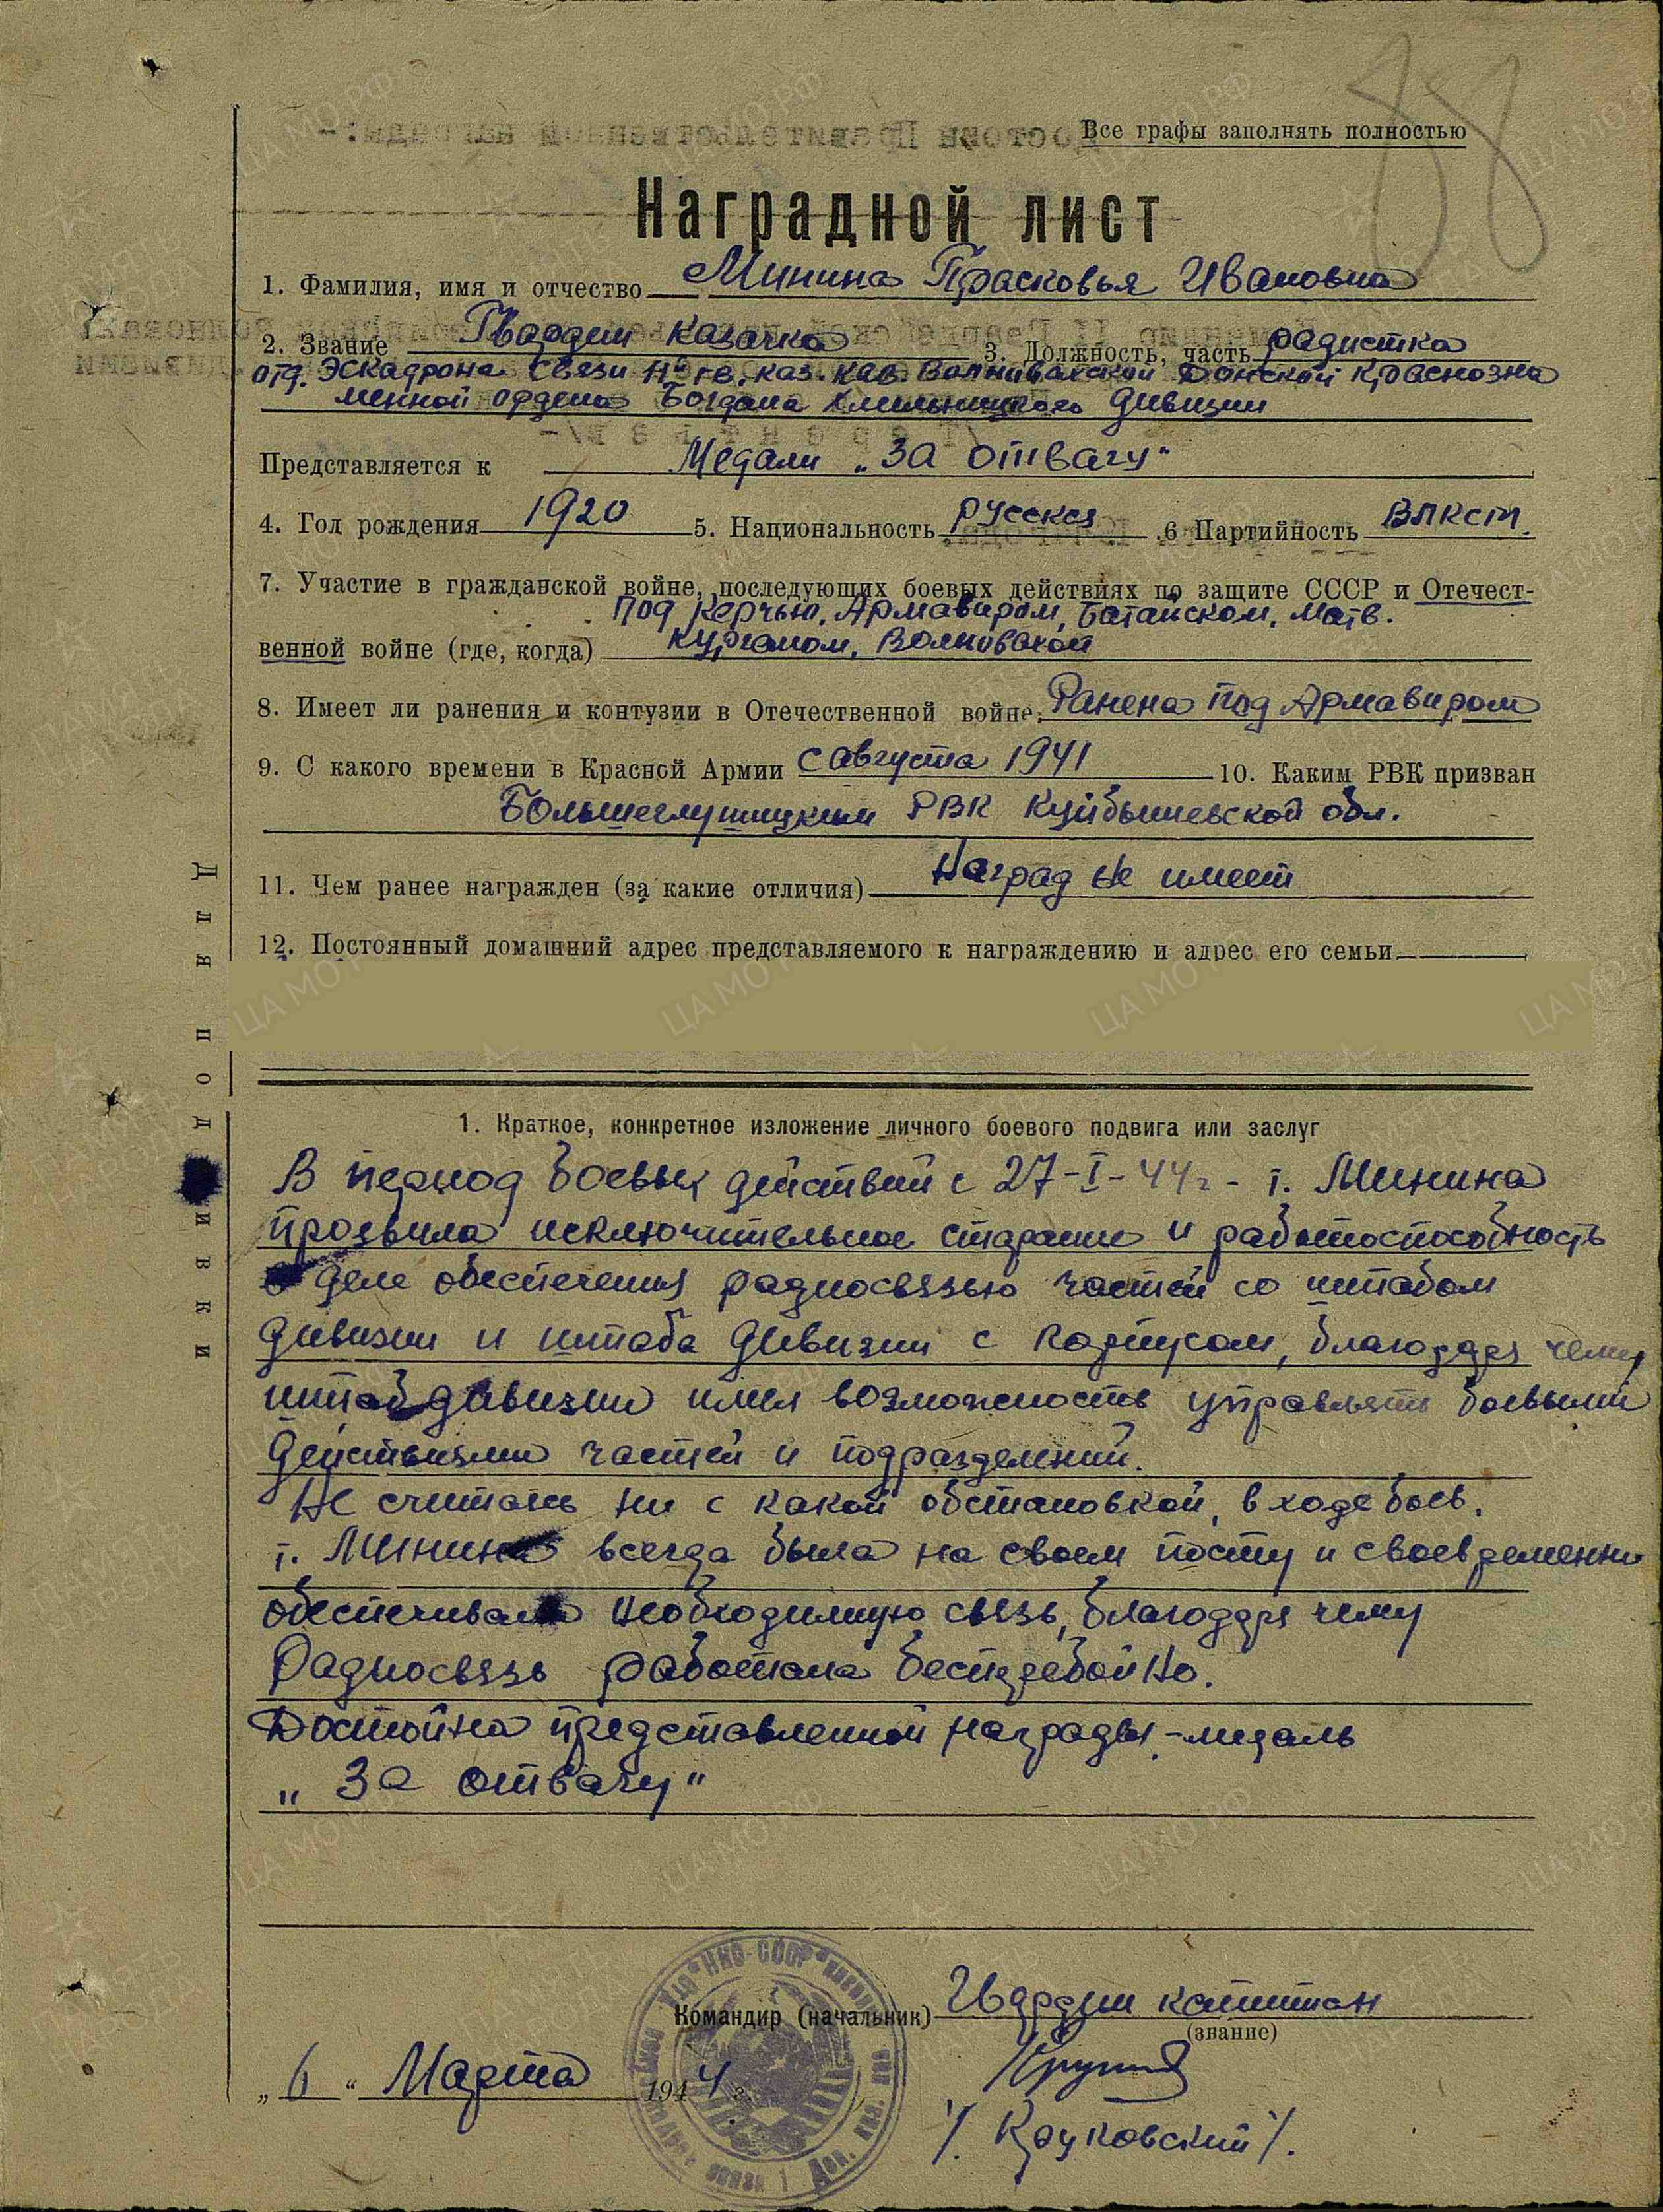 Все графы заполнять полностью
Наградной лист
1. Фамилия, имя и отчество Минина Прасковья Ивановна
2. Звание Гвардии казачка 3. Должность, часть радистка
отд. Эскадрона связи 11й гв. каз. кав. Волновахской Донской Краснозна
менной ордена Богдана Хмельницкого дивизии
Представляется к Медали „За отвагу“
4. Год рождения 1920 5. Национальность русская .6 Партийность ВЛКСМ.
7. Участие в гражданской войне, последующих боевых действиях по защите СССР и Отечест-
под Керчью, Армавиром, Батайском, Матв.
венной войне (где, когда) Курганом, Волновахой
8. Имеет ли ранения и контузии в Отечественной войне. Ранена под Армавиром
9. С какого времени в Красной Армии с августа 1941 10. Каким РВК призван
Большеглушицким РВК Куйбышевской обл.
11. Чем ранее награжден (за какие отличия) Наград не имеет
12. Постоянный домашний адрес представляемого к награждению и адрес его семьи
Для подшивки
1. Краткое, конкретное изложение личного боевого подвига или заслуг
В период боевых действий с 27-I-44г - т. Минина
проявила исключительное старание и работоспособность
в деле обеспечения радиосвязью частей со штабом
дивизии и штаба дивизии с корпусом, благодаря чему
штаб дивизии имел возможность управлять боевыми
действиями частей и подразделений.
Не считаясь ни с какой обстановкой, в ходе боев,
т. Минина всегда была на своем посту и своевременно
обеспечивала необходимую связь, благодаря чему
Радиосвязь работала бесперебойно.
Достойна представленной награды - медаль
„За отвагу“
Командир (начальник) Гвардии капитан
(звание)
„6“ Марта 1944 г.
/. Круковский /.
88
НКО СССР
ЦАМО.РФ
ПАМЯТЬ НАРОДА